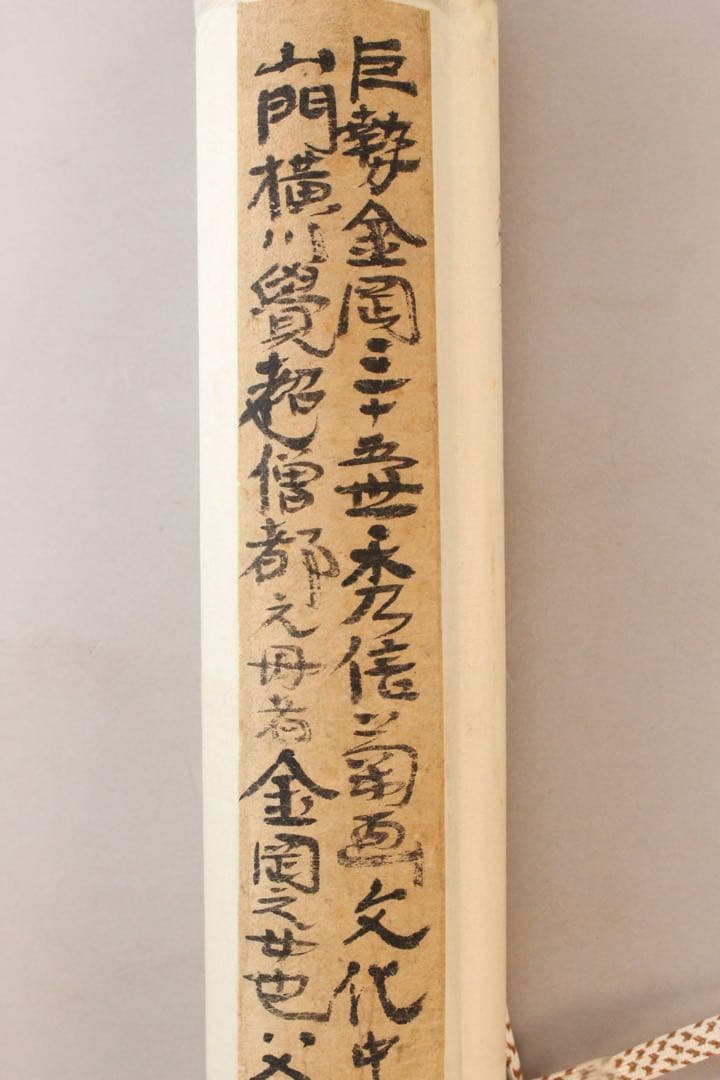 巨勢金岡三十五世秀信菊画文化中
山門横川覺超僧都之母者金岡之女也父